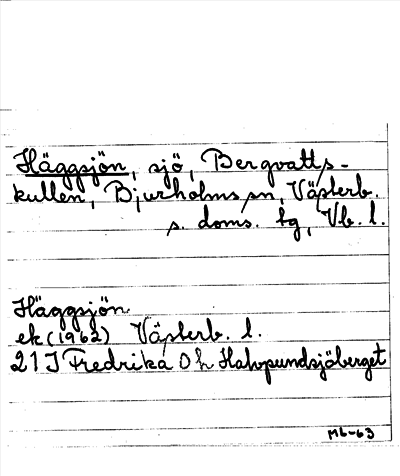 Häggsjön, sjö, Bergvatts-
kullen, Bjurholms sn, Västerb.
s. doms. tg, Vb. l.
Häggsjön
ek (1962) Västerb. l.
21 J Fredrika 0 h Halvpundsjöberget
Mb-63